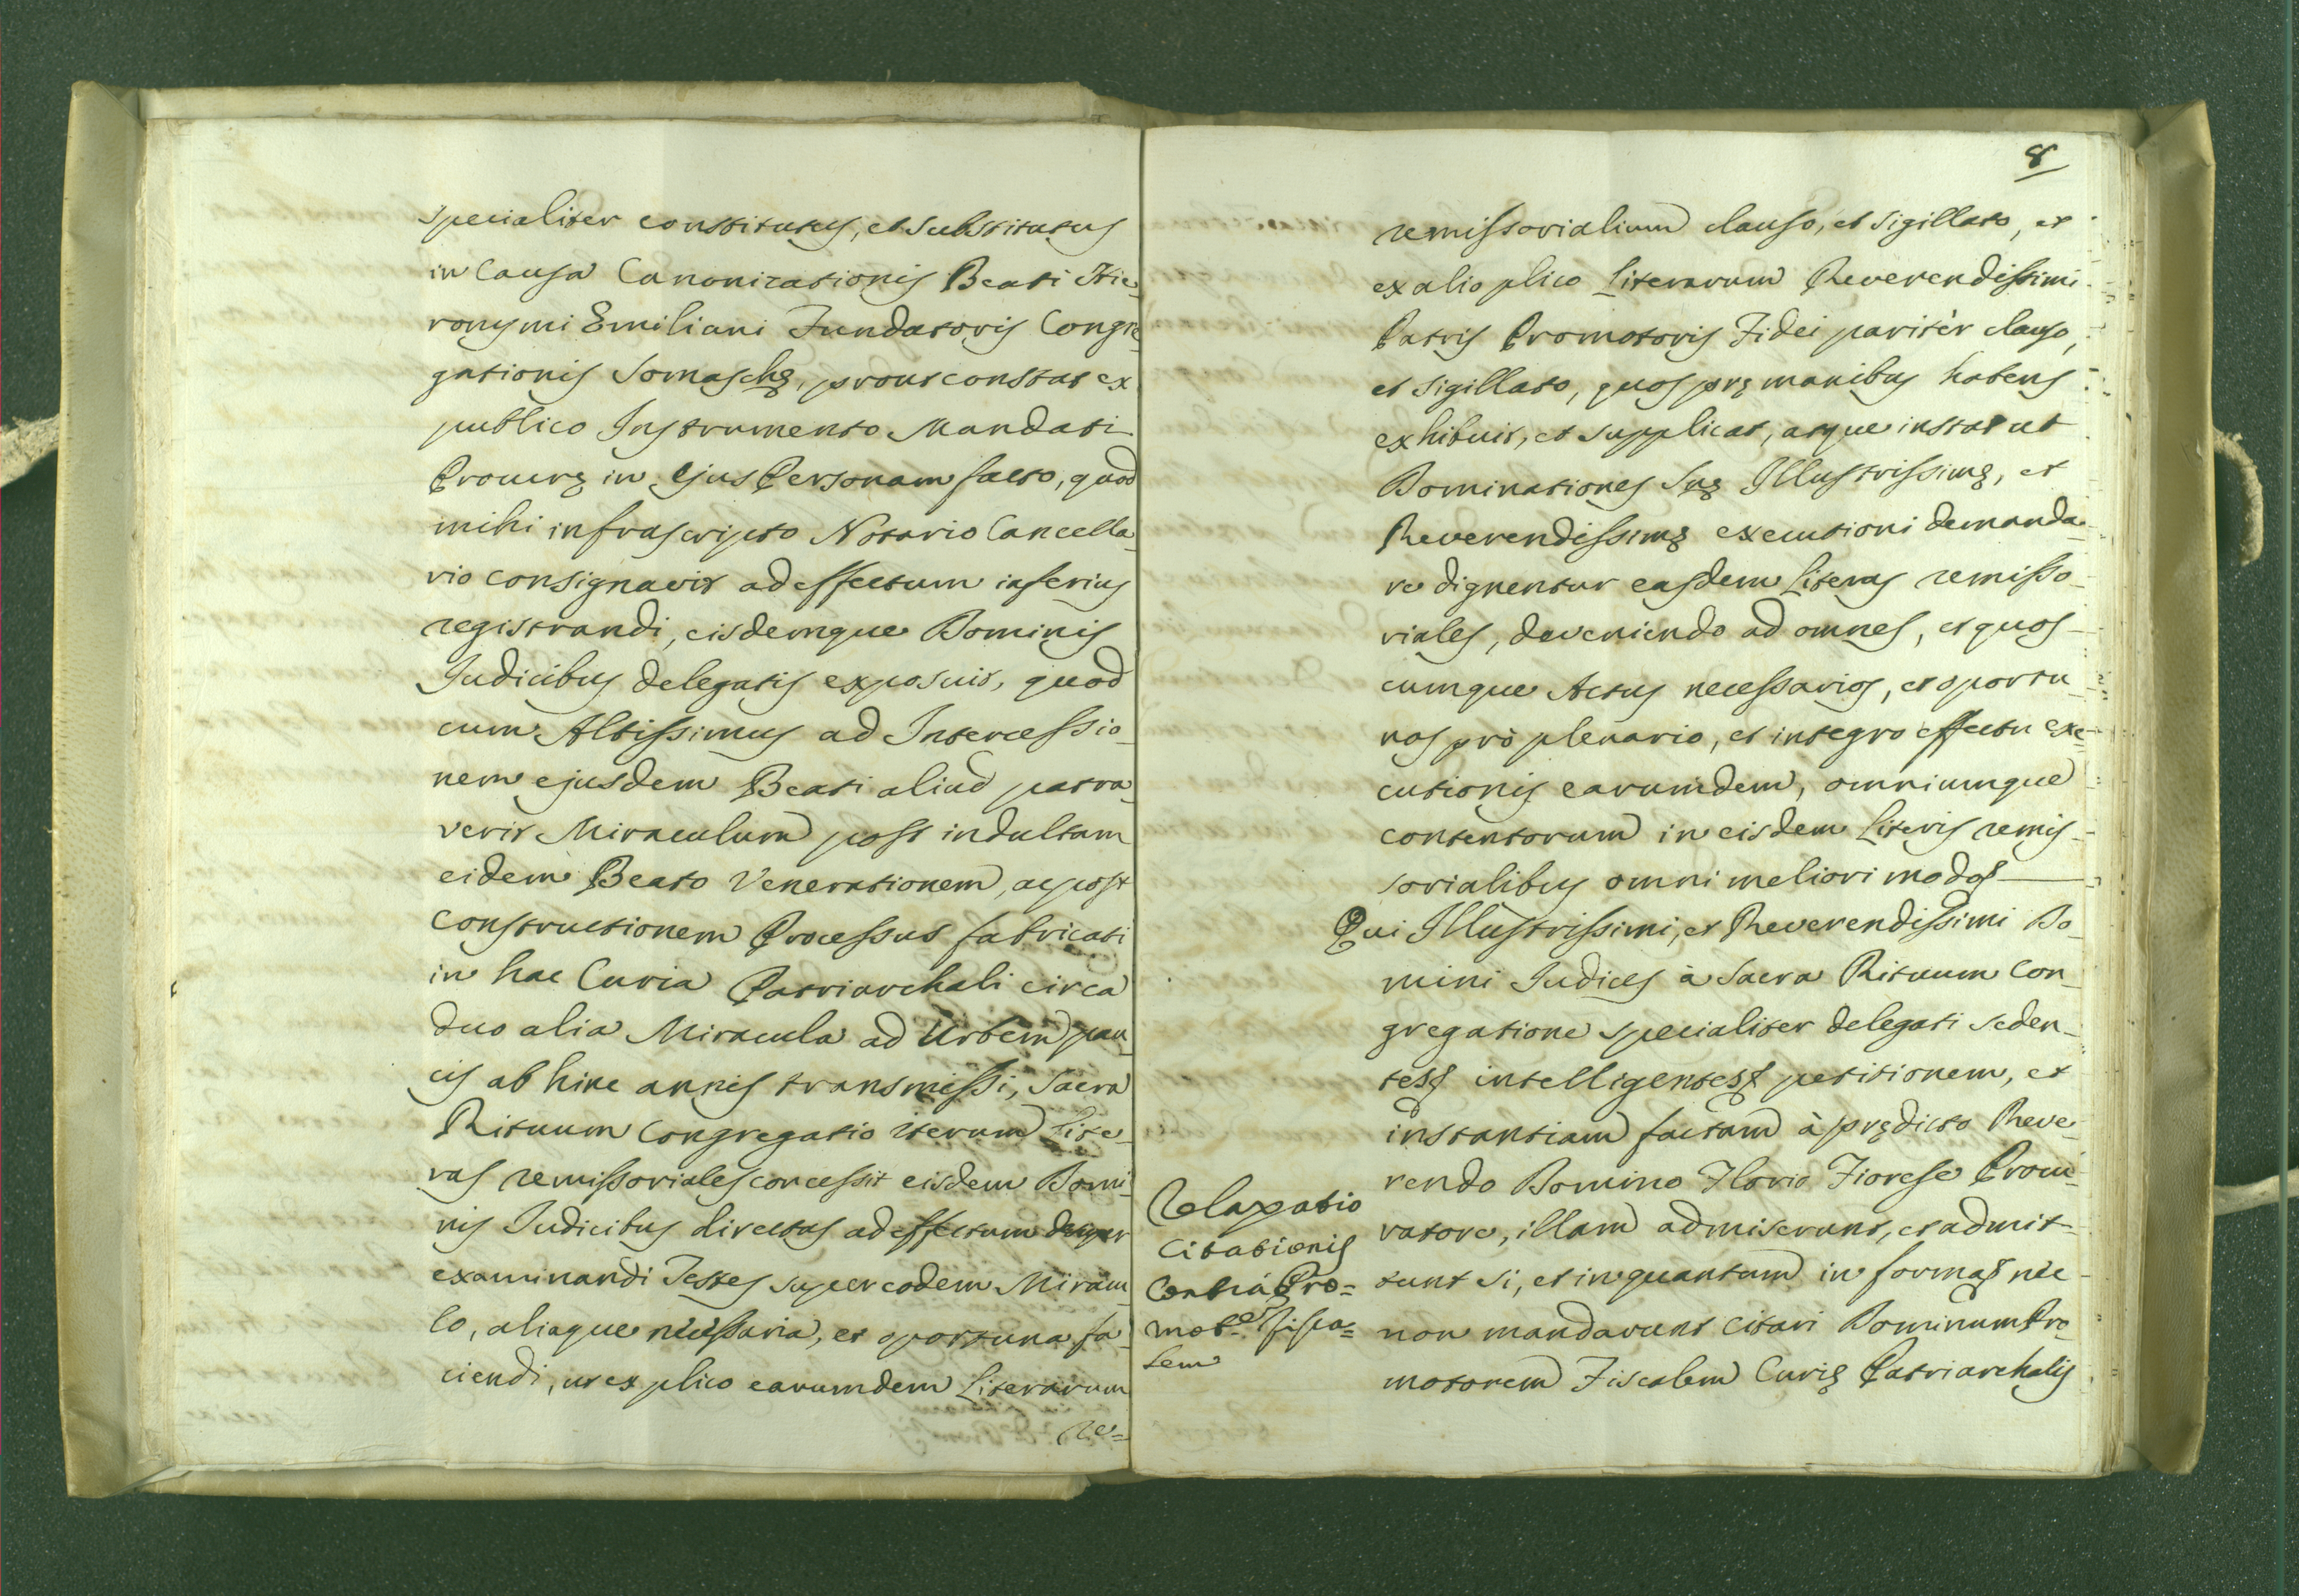 specialiter constitutus, et substitutus
in Causa Canonizationis Beati Hie
ronymi Emiliani Fundatoris Congre
gationis Somaschę, prout constat ex
publico Instrumento Mandati
Procurę in ejus Personam facto, quod
mihi infrascripto Notario Cancella
rio consignavit ad effectum inferius
registrandi, eisdemque Dominis
Judicibus delegatis exposuit, quod
cum Altissimus ad Intercessio
nem ejusdem Beati aliud patra
verit Miraculum post indultam
eidem Beato Venerationem, ac post
constructionem Processus fabricati
in hac Curia Patriarchali circa
duo alia Miracula ad Urbem pau
cis ab hinc annis transmissi, Sacra
Rituum Congregatio iterum Lite
ras remissoriales concessit eisdem Domi
nis Judicibus directas ad effectum
examinandi Testes super eodem Miracu
lo, aliaque necessaria, et oportuna fa
ciendi, ut ex plico earumdem Literarum
re=
8
remissorialium clauso, et sigillato, et
ex alio plico Literarum Reverendissimi
Patris Promotoris Fidei paritèr clauso,
et sigillato, quos prę manibus habens
exhibuit, et supplicat, atque instat ut
Dominationes Suę Illustrissimę, et
Reverendissimę executioni demanda
re dignentur easdem Literas remisso
riales, deveniendo ad omnes, et quos
cumque Actus necessarios, et oportu
nos prò plenario, et integro effectu exe
cutionis earumdem, omniumque
contentorum in eisdem Literis remis
sorialibus omni meliori modo
Qui Illustrissimi, et Reverendissimi Do
mini Judices à Sacra Rituum Con
gregatione specialiter delegati seden
tes intelligentes petitionem, et
instantiam factam à prędicto Reve
rendo Domino Florio Fiorese Procu
ratore, illam admiserunt, et admit
tunt si, et in quantum in forma nec
non mandarunt citari Dominum Pro
motorem Fiscalem Curię Patriarchalis
Relaxatio
Citationis
Contrà Pro=
mot.em Fisca=
lem